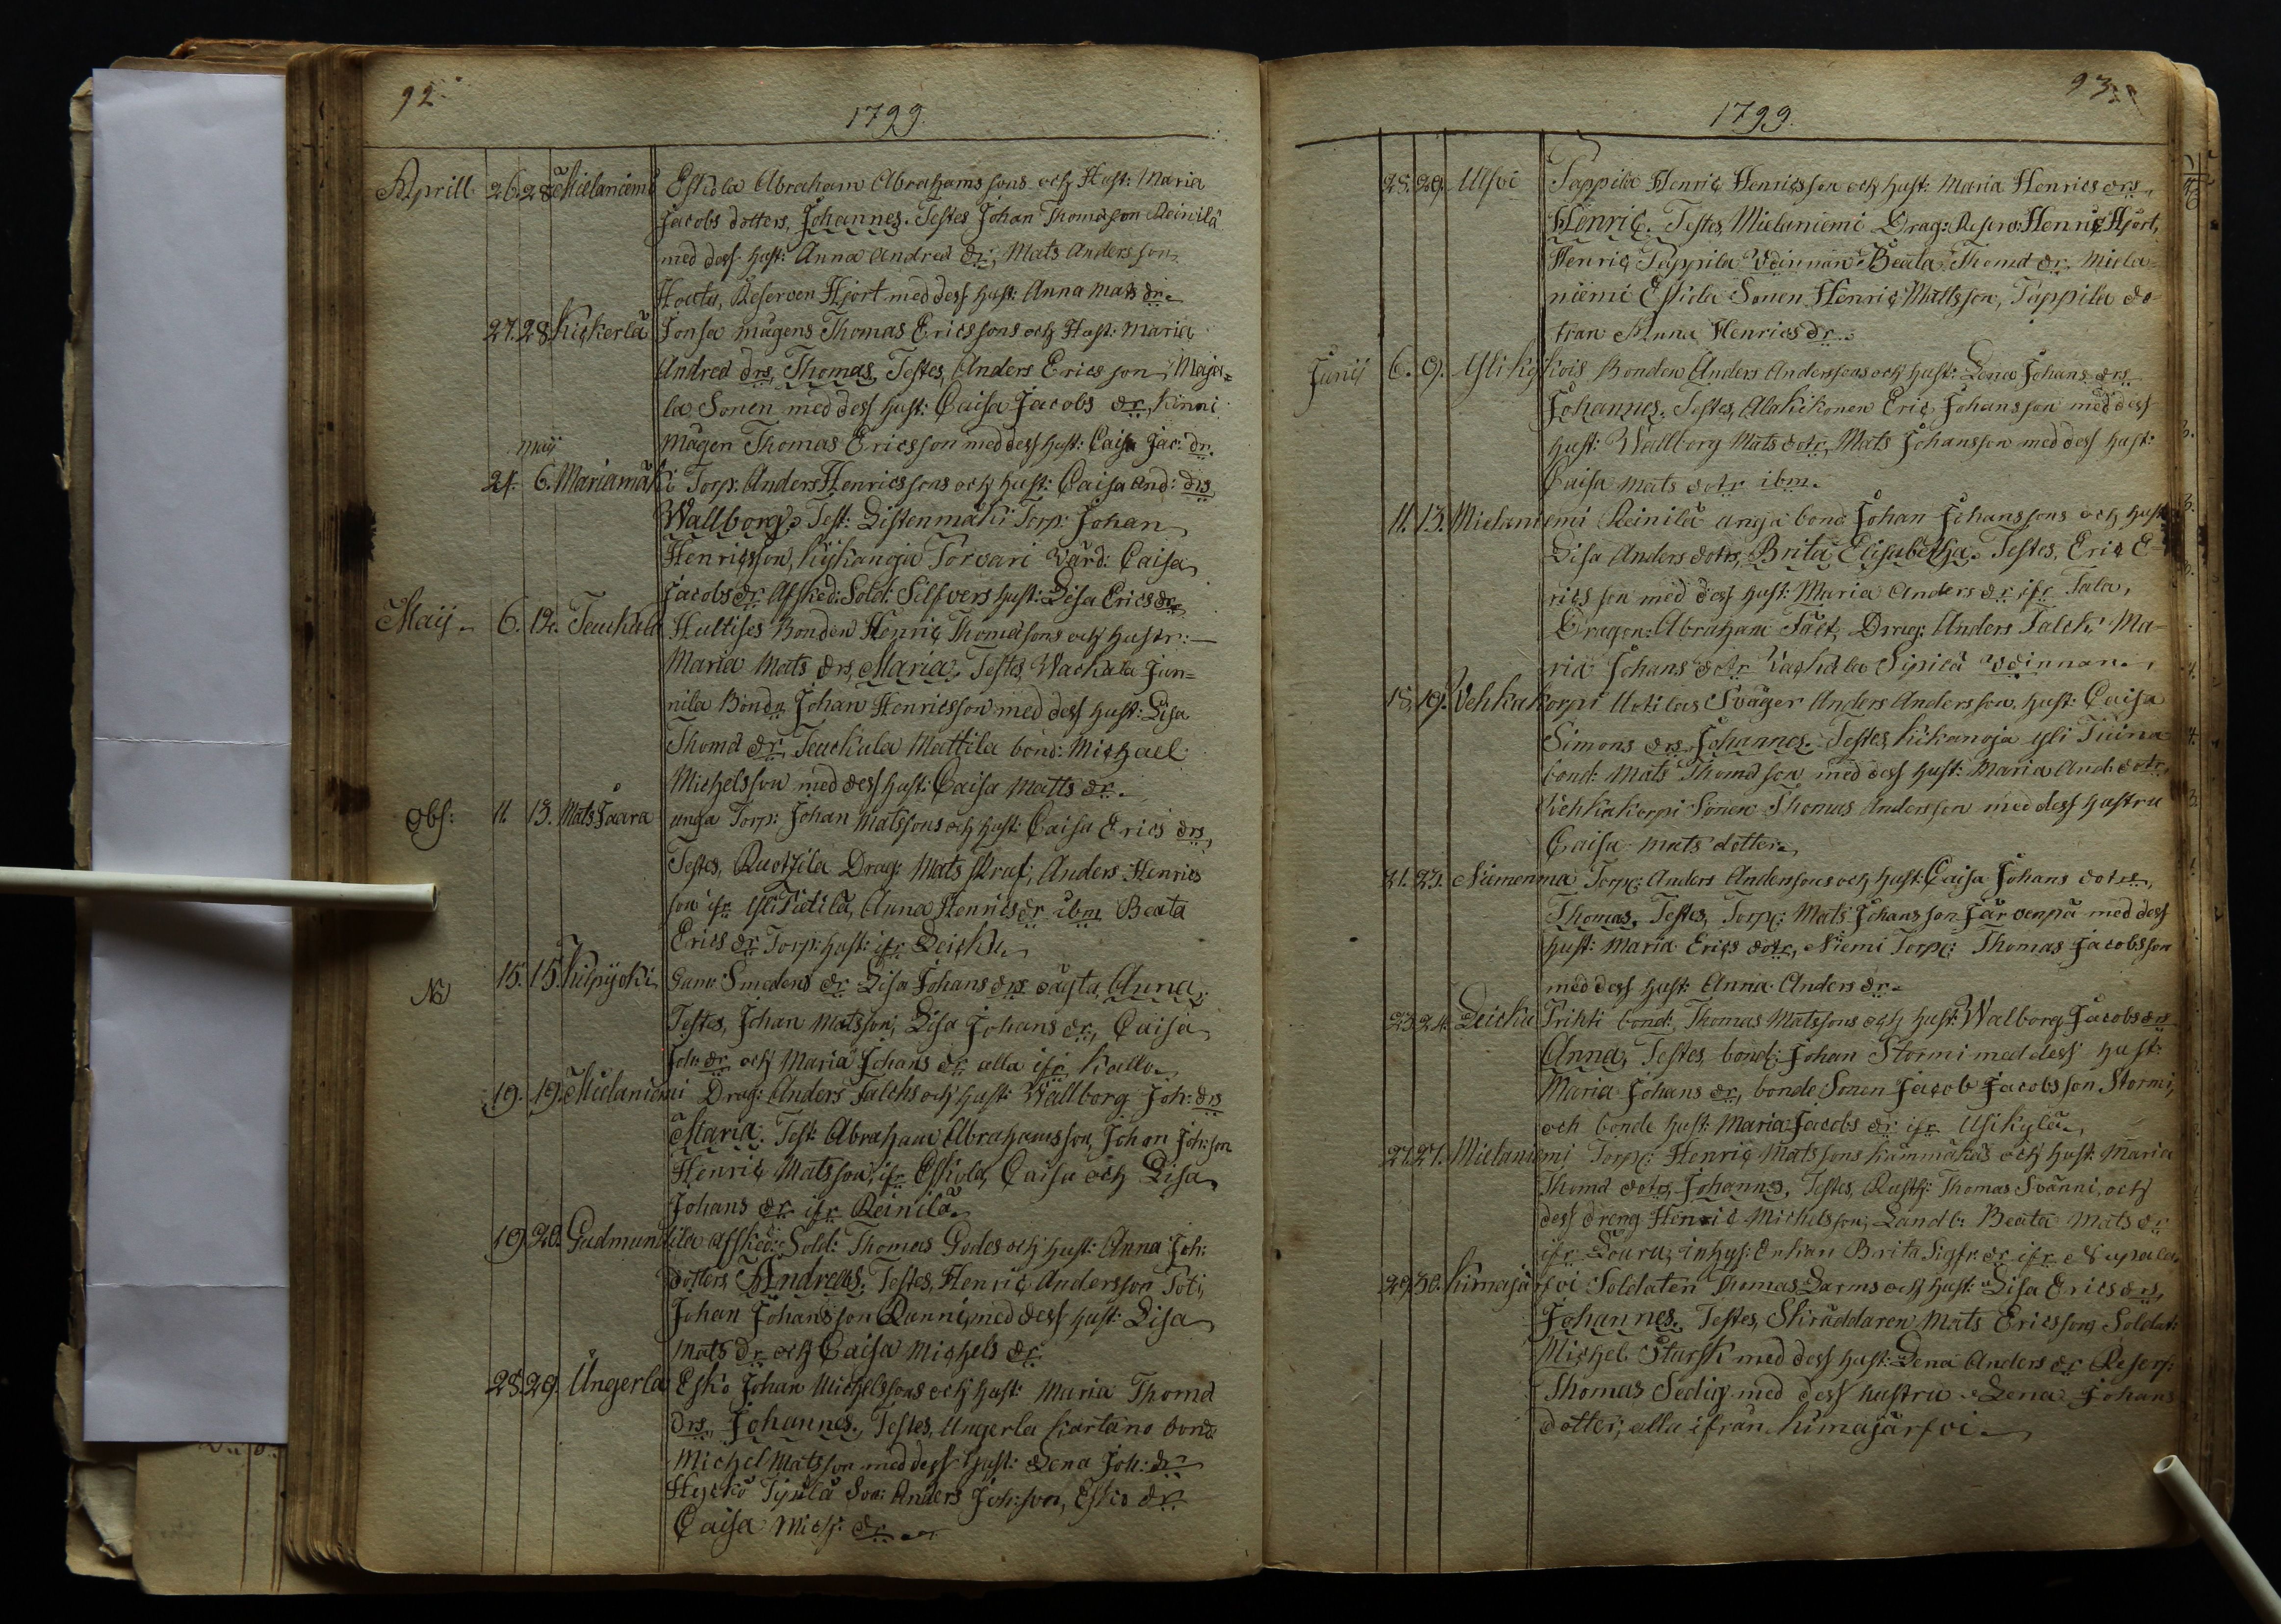 92
1799.
Aprill. 26. 28. Mielaniemi Eskola Abraham Abrahams sons och Hust: Maria
Jacobs dotters, Johannes. Testes Johan Thomasson Reinilä
med dess hust: Anna Andreæ dr, Mats Andersson
Houtu, Reserven Hjort med dess hust: Anna Mats dr.
27. 28. Kickerlä Jonsa mågens Thomas Ericssons och Hust: Maria
Andreæ drs, Thomas, Testes, Anders Ericsson, Maja-
la Sonen med dess hust: Caisa Jacobs dr, Kinni
Maij Mågen Thomas Ericsson med dess hust: Caisa Jac: dr.
24. 6. Mariamäki Torp. Anders Henricssons och hust: Caisa And: drs
Wallborg, Test: Listenmäki Torp: Johan
Henricsson, Kijkanoja Torvari Värd: Caisa
Jacobs dr Afsked: Sold: Silfvers hust: Lisa Erics dr
Maij. 6. 12. Teuchula Hultises Bonden Henric Thomæsons och hustr:
Maria Mats drs, Maria, Testes, Wachala Jun-
nila Bond: Johan Henricsson med dess hust: Lisa
Thomæ dr, Teuchala Mattila bond: Michael
Michelsson med dess hust: Caisa Matts dr.
Obs: 11. 13. Mats Jaara unga Torp: Johan Matssons och hust: Caisa Erics drs,
Testes, Ruotzila Drag: Mats Kraf, Anders Henrics
son ifr Yli Tutila, Anna Henrics dr ibm Beata
Erics dr Torp: hust: ifr Leicku
No 15. 15. Kilpijoki Gam: Smedens dr Lisa Johans drs oägta, Anna,
Testes, Johan Matsson, Lisa Johans dr, Caisa
Joh: dr och Maria Johans dr alla ifr Kallo.
19. 19. Mielaniemi Drag: Anders Falcks och hust: Wallborg Joh: drs
Maria. Test: Abraham Abrahamsson, Johan Joh:son
Henric Matsson, ifr Eskola, Caisa och Lisa
Johans dr ifr Reinilä.
19. 20. Gudmundila afsked: Sold: Thomas Godes och hust: Anna Joh:
dotters, Andreas. Testes, Henric Andersson Toti,
Johan Johansson Runni, med dess hust: Lisa
Mats dr och Caisa Michels dr
28. 29. Ungerla Esko Johan Michelssons och hust: Maria Thomæ
drs, Johannes. Testes, Ungerla Kartano bond:
Michel Matsson med dess hust: Lena Joh: dr
Hyrkö Tijslä Son: Anders Joh:son, Esko dr
Caisa Mich: dr
93.
1799.
28. 29. Ulfvi Pappila Henric Henricsson och hust: Maria Henrics drs,
Henric. Testes, Mielaniemi Drag: Reserv: Henric Hjort,
Henric Pappila Qvinnan Beata Thomæ dr. Miela-
niemi Eskola Sonen Henric Mattsson, Pappila do-
tran Anna Henrics dr.
Junij 6. 9. Ylikykois Bonden Anders Anderssons och hust: Lena Johans drs
Johannes. Testes, Alakikonen Eric Johansson med dess
hust: Wallborg Mats dotr, Mats Johansson med dess hust:
Caisa Mats dotr ibm.
11. 13. Mielaniemi Reinilä unga bond: Johan Johanssons och hust
Lisa Anders dotrs, Brita Elisabetha. Testes, Eric E-
rics son med dess hust: Maria Anders dr ifr Tala,
Dragon: Abraham Fält, Drag: Anders Falck, Ma-
ria Johans dotr Sipilä Qvinnan.
18. 19. Vehkakorpi Uotilas Svåger Anders Andersson hust: Caisa
Simons drs Johannes. Testes, Kikanoja Yli Tuina
bond: Mats Thomæson med dess hust: Maria And: dotr,
Vehkakorpi Sonen Thomas Andersson med dess hustru
Caisa Mats dotter.
21. 23. Niemenma Torp: Anders Andersons och hust: Caisa Johans dotrs,
Thomas. Testes, Torp: Mats Johansson Järvenpä med dess
hust: Maria Erics dotr, Niemi Torp: Thomas Jacobsson
med dess hust: Anna Anders dr.
23. 24. Leicku Prihti bond: Thomas Matssons och hust: Walborg Jacobs drs
Anna, Testes, bond: Johan Stormi med dess hust:
Maria Johans dr, bonde Sonen Jacob Jacobsson Stormi,
och bonde hust: Maria Jacobs dr ifr Usikylä.
27. 27. Mielaniemi Torp: Henric Matssons Kammakas och hust: Maria
Thomæ dotrs, Johannes, Testes, Rusth: Thomas Svänni, och
dess dreng Henric Michelsson, Landb: Beata Mats dr
ifr Louru, inhys: Enkan Brita Sigfr: dr ifr
29. 30. Kimajärfvi Soldaten Thomas Larms och hust: Lisa Erics drs,
Johannes. Testes, Skräddaren Mats Ericsson, Soldat:
Michel Stursk med dess hust: Lena Anders dr Reserv:
Thomas Sedig med dess hustru Lena Johans
dotter, alla ifrån Kimajärfvi.